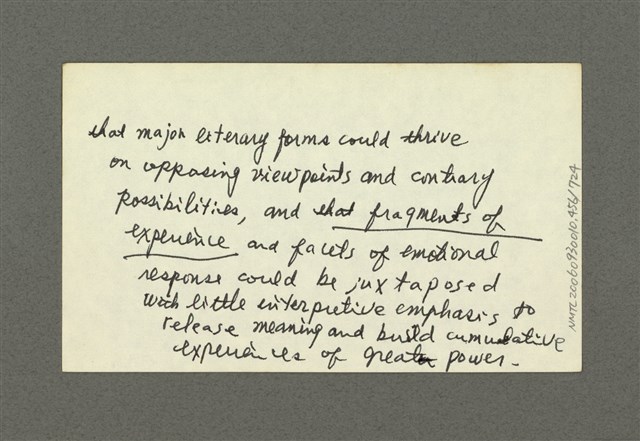 that major literary forms could thrive
on opposing viewpoints and contrary
possibilities, and that fragments of
experience and facets of emotional
response could be juxtaposed
with little interpretive emphasis to
release meaning and build cumulative
experiences of great power.
NMTL20060930010.456/724